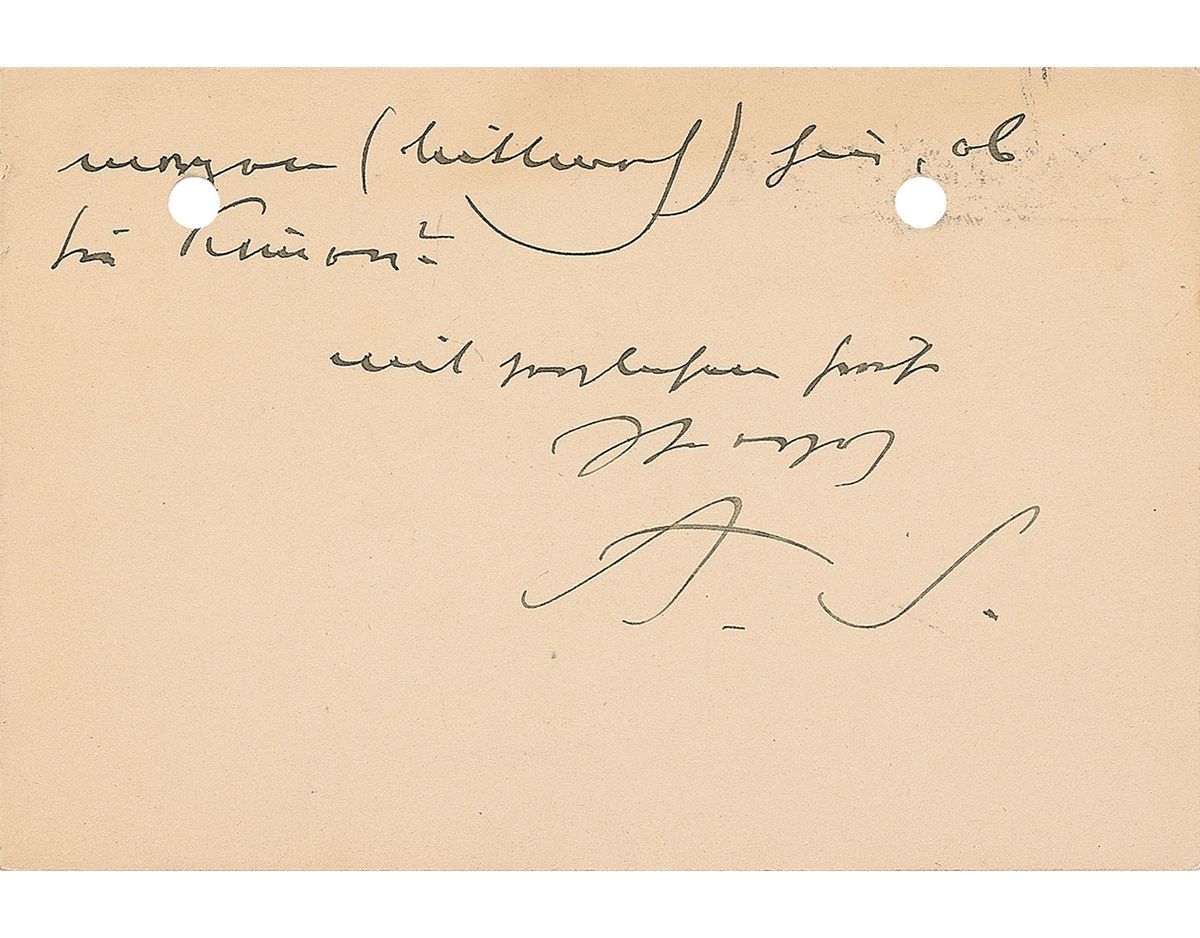 morgen (Mittwoch) früh, ob
Sie können?
mit herzlichem Gruß
Ihr
A. S.